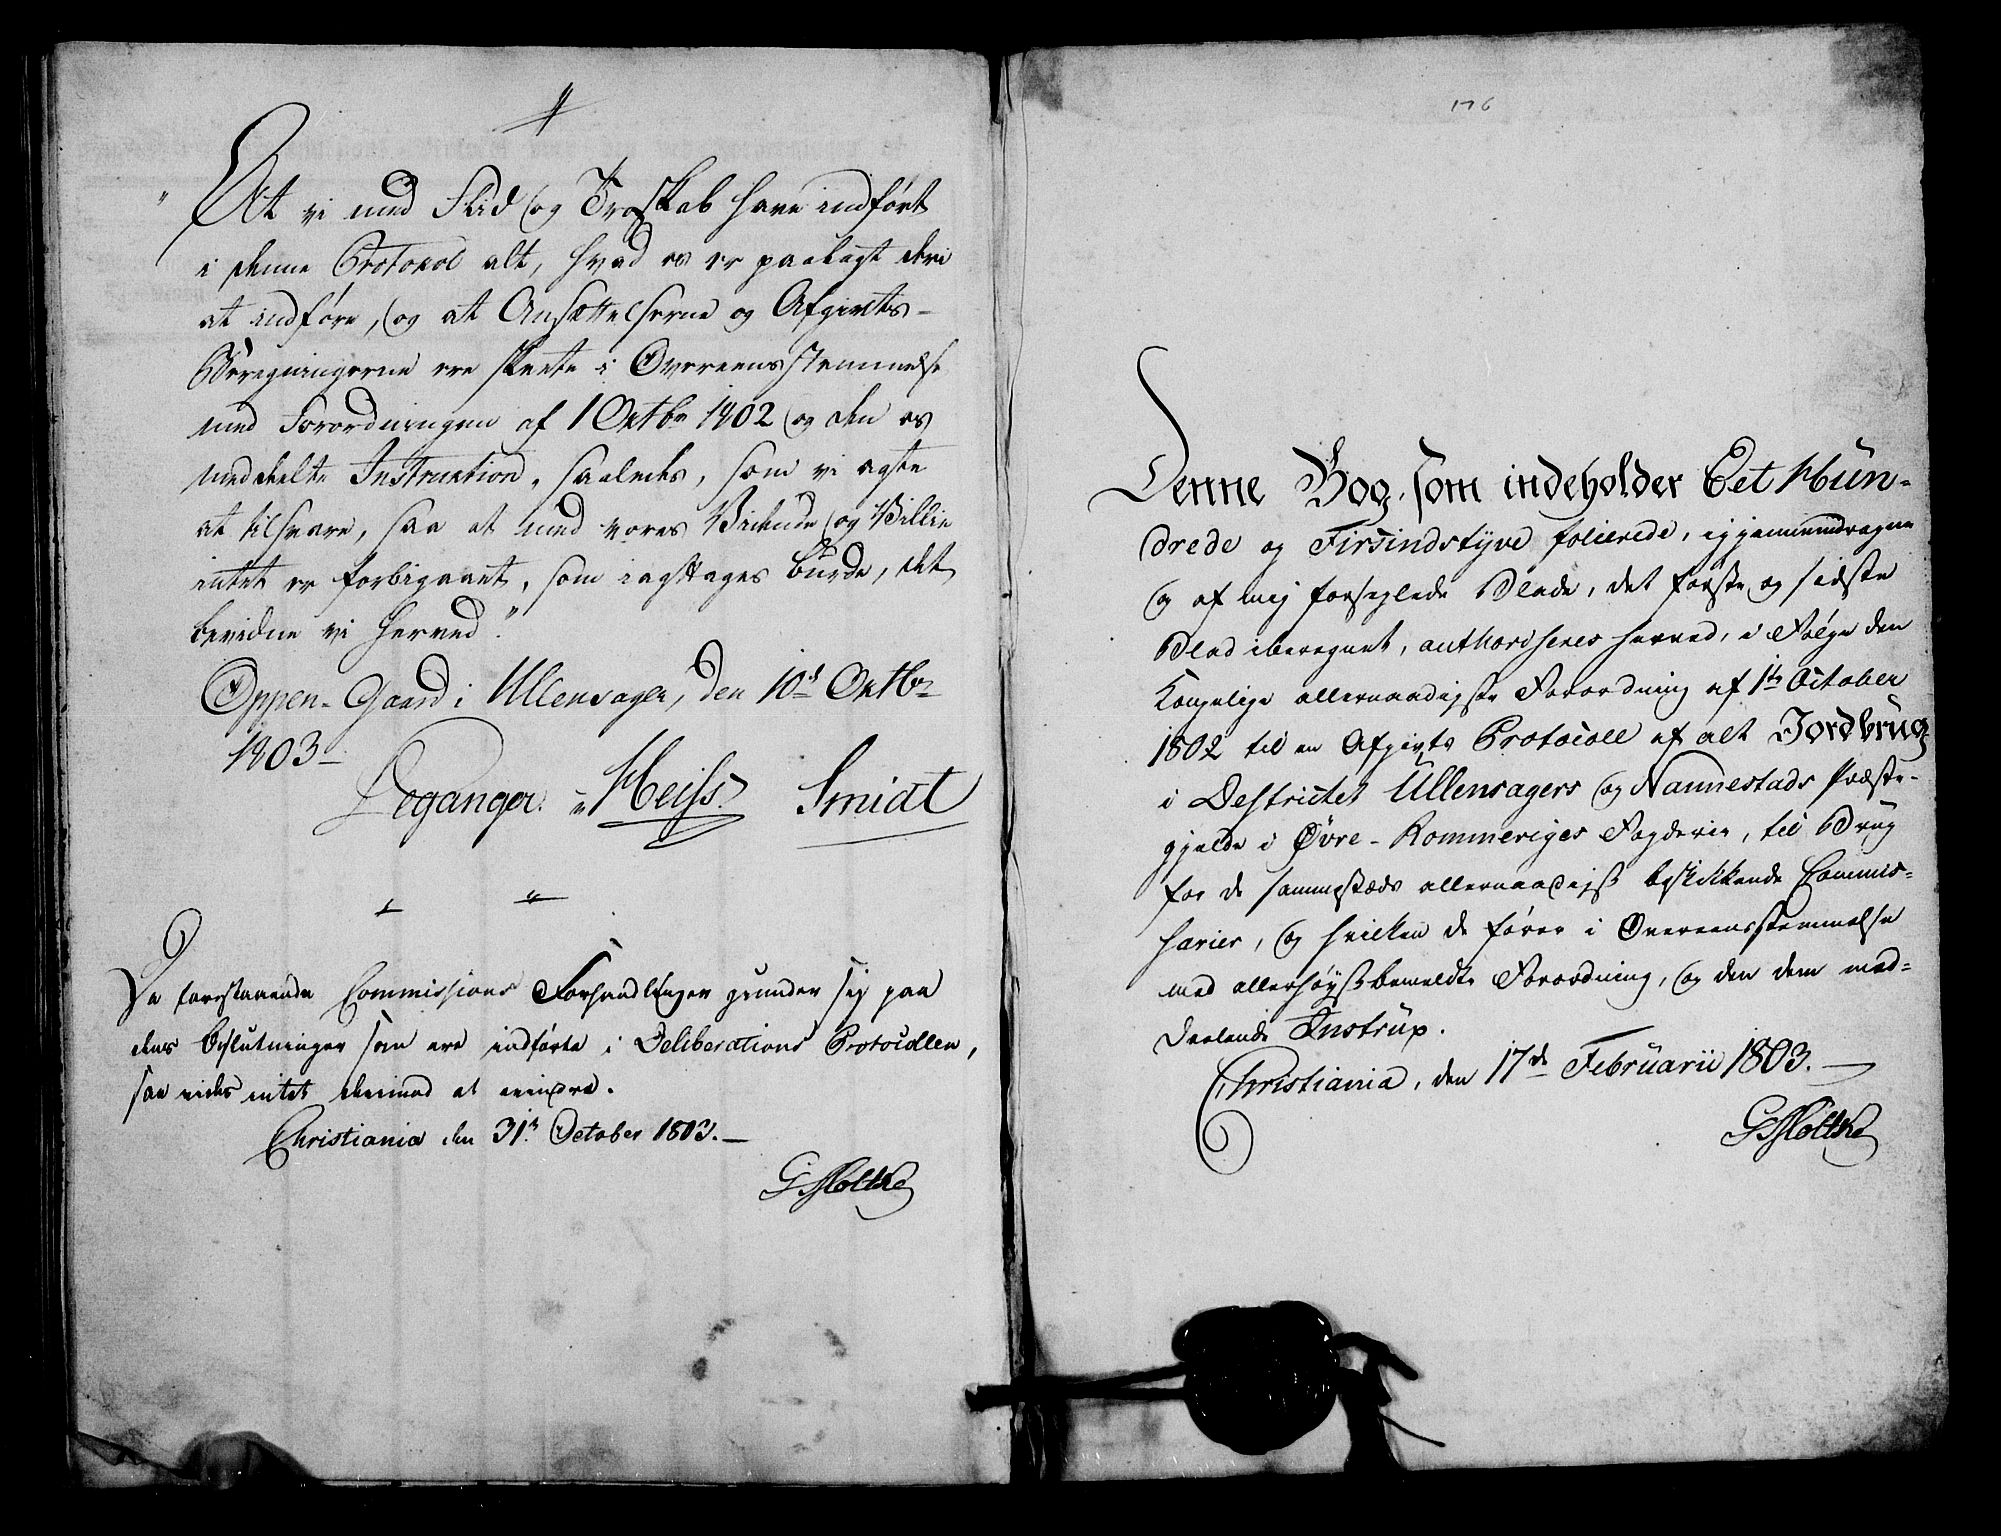 "At vi med Flid og Troskab have indført
i denne Protokol alt, hvad os er paalagt deri
at indføre, og at Ansættelserne og Afgivts-
Beregningerne ere skeete i Overeensstemmelse
med Forordningen af 1 Octbr 1802 og den os
meddeelte Instruction, saaledes, som vi agte
at tilsvare, saa at med vores Vidende og Villie
intet er forbigaaet, som iagttages burde, det
bevidne vi herved."
Oppen-Gaard i Ullensager, den 10d Octbr
1803 —
Heiss. Smidt
Da forestaaende Commissions Forhandlinger grunder sig paa
dens Beslutninger som ere indførte i Deliberations Protocollen,
saa vides intet derimod at erindre.
Christiania den 31t October 1803. —
G Moltke
176
Denne Bog, som indeholder Eet Hun-
drede og Firsindstyve folierede, igjennemdragne
og af mig forseglede Blade, det første og sidste
Blad iberegnet, authoriseres herved, i Følge den
Kongelige allernaadigste Forordning af 1te October
1802 til en Afgivts Protocoll af alt Jordbrug
i Destrictet Ullensagers og Nannestads Præste-
gjelde i Øvre-Rommeriges Fogderie, til Brug
for de sammestæds allernaadigst beskikkende Commis-
sarier, og hvilken de fører i Overeensstemmelse
med allerhøystbemeldte Forordning, og den dem med-
deelende Instrux.
Christiania, den 17de Februarii 1803. —
G Moltke